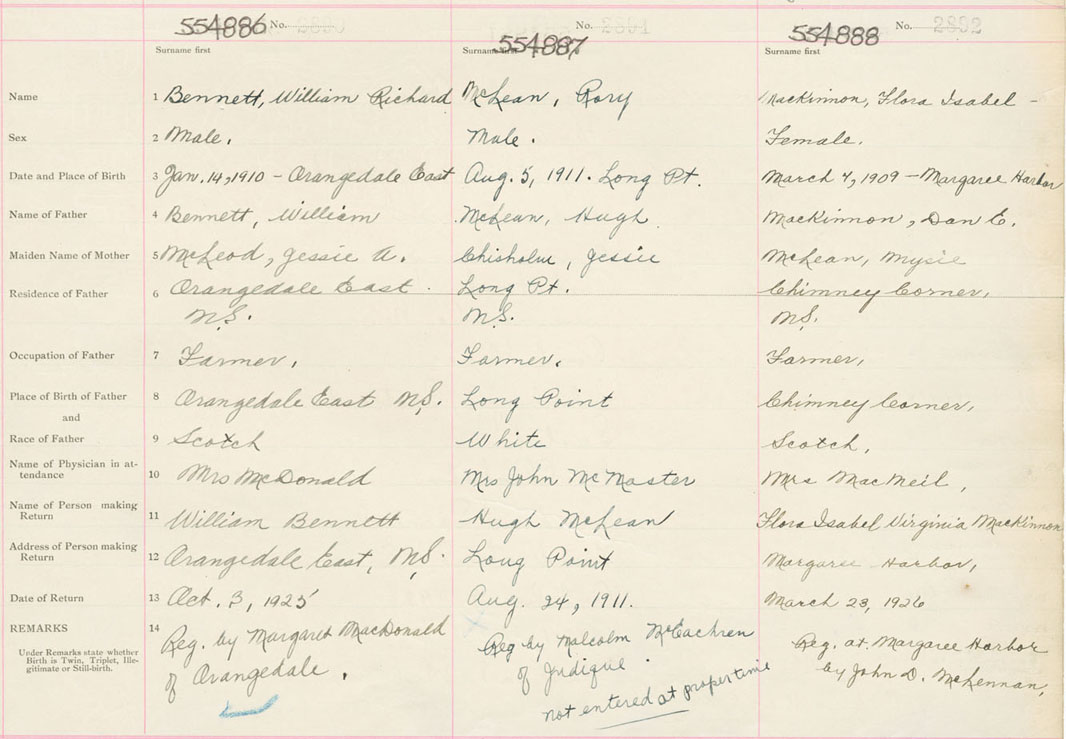 554886 No. 2890 554887 No. 2891 554888 No. 2892
Surname first Surname first Surname first
Name 1 Bennett, William Richard McLean, Rory MacKinnon, Flora Isabel -
Sex 2 Male. Male. Female.
Date and Place of Birth 3 Jan. 14, 1910 - Orangedale East Aug. 5, 1911. Long Pt. March 7, 1909 - Margaree Harbor
Name of Father 4 Bennett, William McLean, Hugh MacKinnon, Dan E.
Maiden Name of Mother 5 McLeod, Jessie A. Chisholm, Jessie McLean, Mysie
Residence of Father 6 Orangedale East. Long Pt. Chimney Corner,
N.S. N.S. N.S.
Occupation of Father 7 Farmer. Farmer. Farmer,
Place of Birth of Father 8 Orangedale East N.S. Long Point Chimney Corner,
and
Race of Father 9 Scotch White Scotch,
Name of Physician in at-
tendance 10 Mrs McDonald Mrs John McMaster Mrs MacNeil,
Name of Person making
Return 11 William Bennett Hugh McLean Flora Isabel Virginia MacKinnon
Address of Person making
Return 12 Orangedale East, N.S. Long Point Margaree Harbor,
Date of Return 13 Oct. 3, 1925 Aug. 24, 1911. March 23, 1926
REMARKS 14 Reg. by Margaret MacDonald Reg by Malcolm McEachren Reg. at Margaree Harbor
Under Remarks state whether
Birth is Twin, Triplet, Ille-
gitimate or Still-birth.
of Orangedale. of Judique. by John D. McLennan,
not entered at proper time